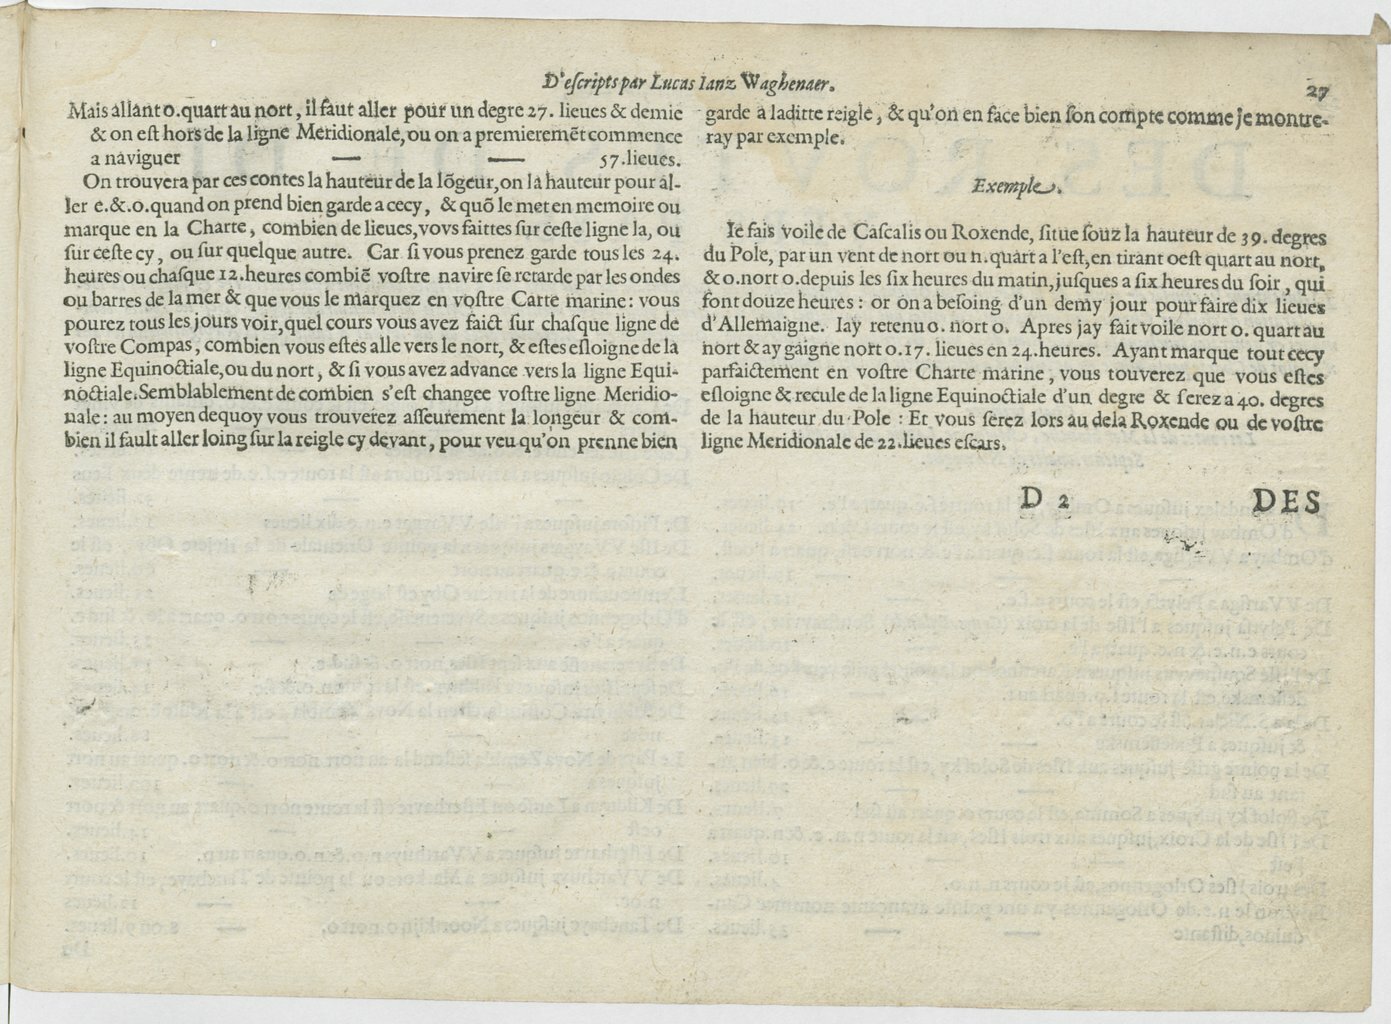 D'escripts par Lucas Ianz Waghenaer.
27
Mais allant o.quart au nort, il faut aller pour un degre 27. lieues & demie
& on est hors de la ligne Meridionale, ou on a premieremẽt commence
a naviguer — — 57.lieues.
On trouvera par ces contes la hauteur de la lõgeur, on la hauteur pour al-
ler e.&.o.quand on prend bien garde a cecy, & quõ le met en memoire ou
marque en la Charte, combien de lieues, vovs faittes sur ceste ligne la, ou
sur ceste cy, ou sur quelque autre. Car si vous prenez garde tous les 24.
heures ou chasque 12.heures combiẽ vostre navire se retarde par les ondes
ou barres de la mer & que vous le marquez en vostre Carte marine: vous
pourez tous les jours voir, quel cours vous avez faict sur chasque ligne de
vostre Compas, combien vous estes alle vers le nort, & estes esloigne de la
ligne Equinoctiale, ou du nort, & si vous avez advance vers la ligne Equi-
noctiale. Semblablement de combien s'est changee vostre ligne Meridio-
nale: au moyen dequoy vous trouverez asseurement la longeur & com-
bien il fault aller loing sur la reigle cy devant, pour veu qu'on prenne bien
garde a laditte reigle, & qu'on en face bien son compte comme je montre-
ray par exemple.
Exemple.
Ie fais voile de Cascalis ou Roxende, situe souz la hauteur de 39. degres
du Pole, par un vent de nort ou n.quart a l'est, en tirant oest quart au nort,
& o.nort o.depuis les six heures du matin, jusques a six heures du soir, qui
font douze heures: or on a besoing d'un demy jour pour faire dix lieues
d'Allemaigne. Iay retenu o. nort o. Apres jay fait voile nort o. quart au
nort & ay gaigne nort o.17. lieues en 24.heures. Ayant marque tout cecy
parfaictement en vostre Charte marine, vous touverez que vous estes
esloigne & recule de la ligne Equinoctiale d'un degre & serez a 40. degres
de la hauteur du Pole: Et vous serez lors au dela Roxende ou de vostre
ligne Meridionale de 22.lieues escars.
D 2
DES